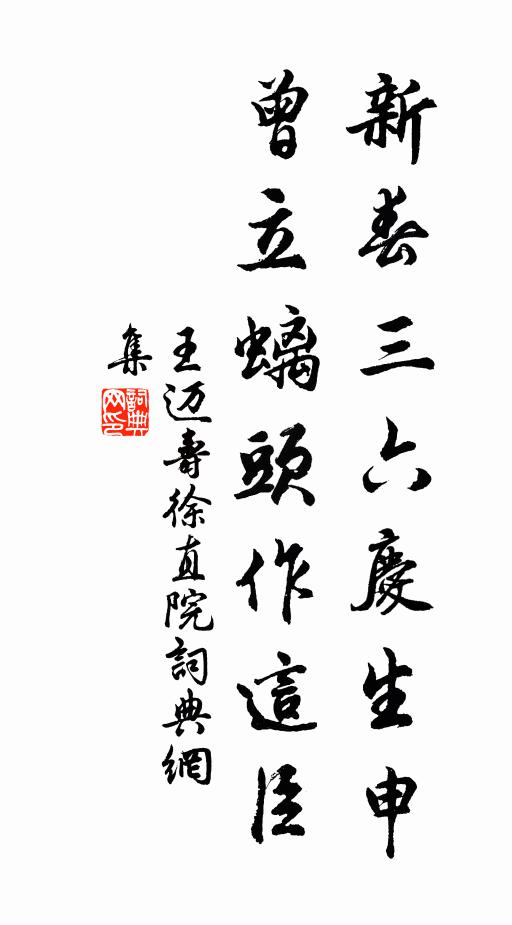 新春三六慶生申
曾立螭頭作這臣
王迈壽徐直院詞典網
集
詞典
网印